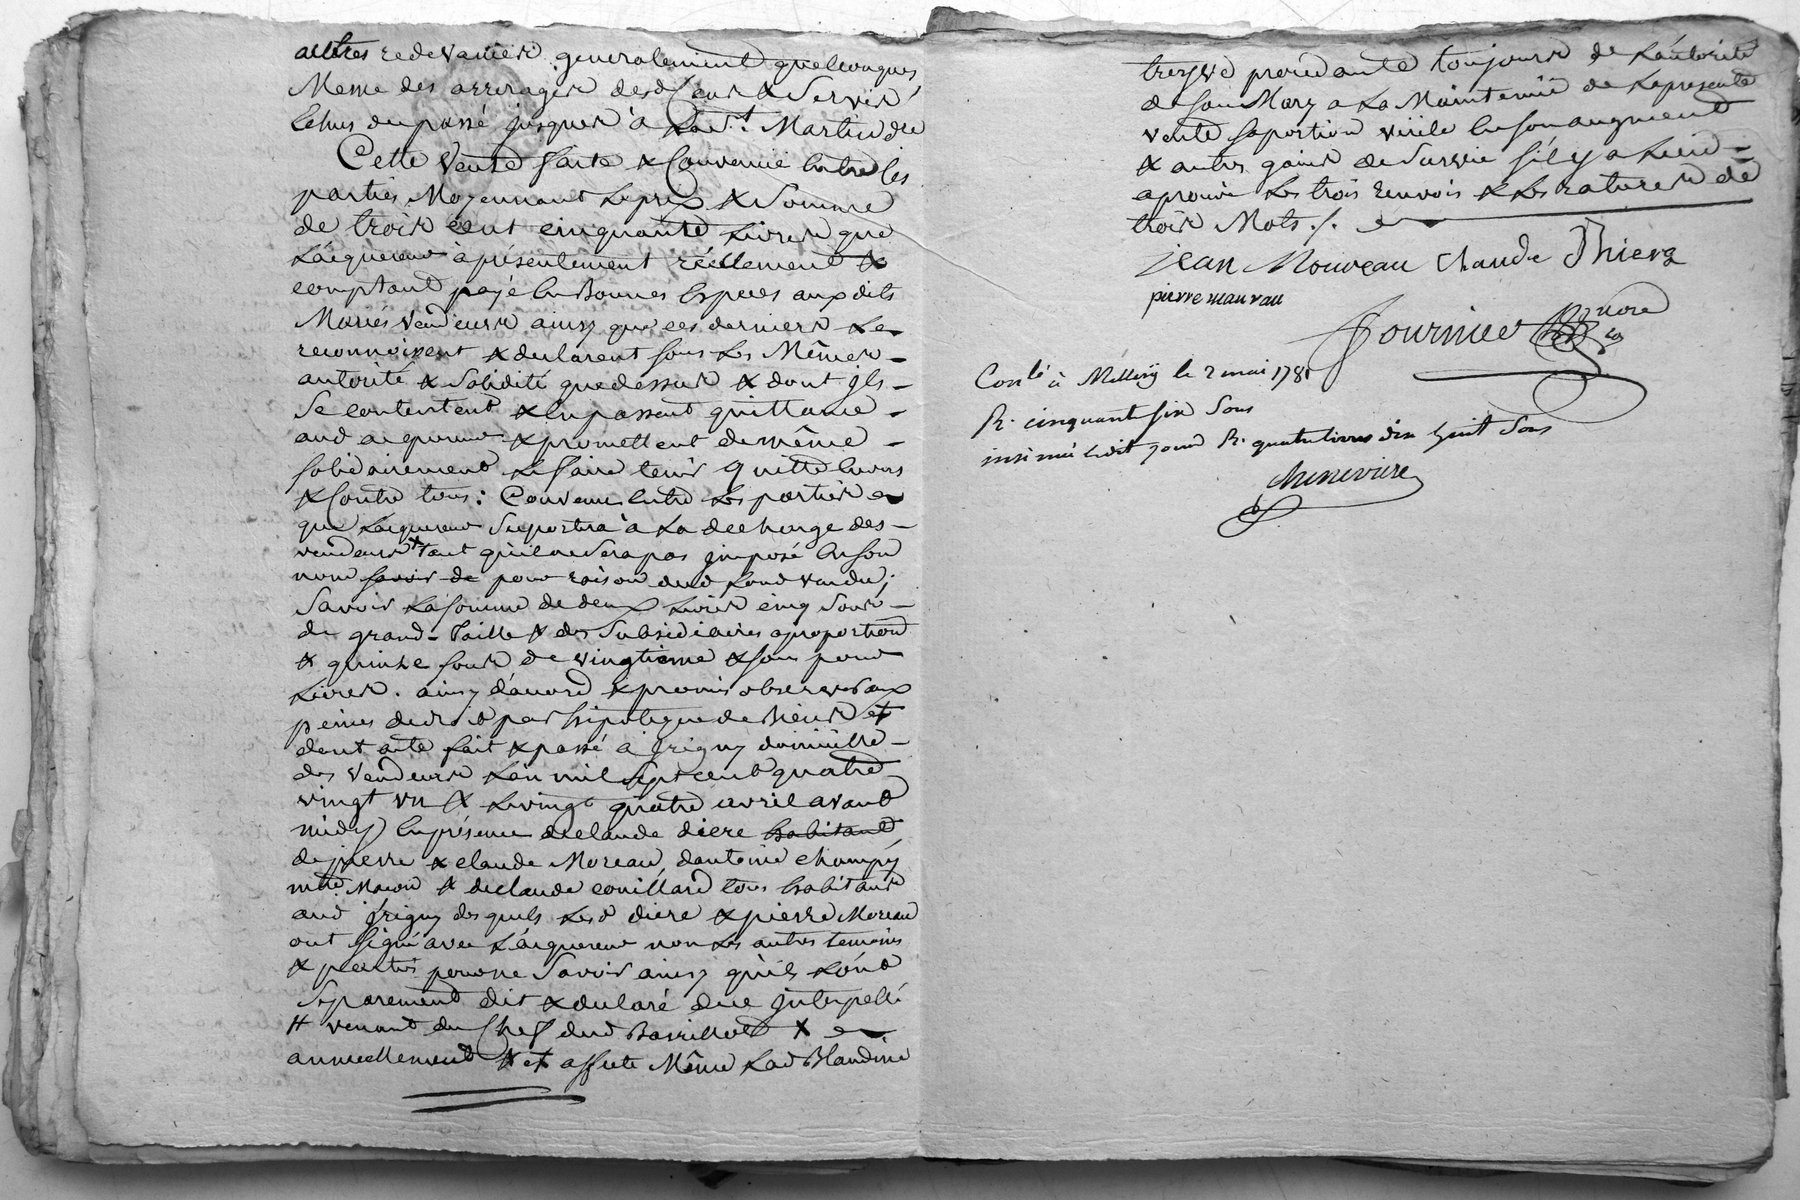 autres redevances generalement quelconques,
Meme des arrerages desd Cens & Servis
échus du passé jusques à la St. Martin der
Cette vente faite & Convenüe entre les
parties Moyennant le prix & Somme
de trois cent cinquante Livres que
L'acquereur à présentement réellement &
comptant payé en Bonnes Especes aux dits
Mariés vendeurs ainsy que ces derniers Le
reconnoissent & declarent sous Les Mêmes
autorité & Solidité que dessus & dont ils
Se contentent & en passent quittance
aud acquereur & promettent de même
solidairement Le faire tenir quitte envers
& Contre tous : Convenu entre Les parties
que Lacquereur Suportera à La decharge des
vendeurs tant qu'il ne Sera pas imposé en son
nom savoir de pour raison dud fond vendu;
Savoir La Somme de deux Livres cinq Sous
de grand Taille & des Subsidiaires a proportion
& quinze Sous de vingtieme & sous pour
Livres . ainsy d'accord & promis observer aux
peines de droit par hipoteque de Biens et
dont acte fait & passé à jrigny domicille
des Vendeurs L'an mil Sept cent quatre
vingt un & Le vingt quatre avril avant
midy en présence de claude diere habitant
de pierre & claude Moreau, d'antoine champ
mtre Macon & de claude couillard tous habitants
aud jrigny des quels Led diere & pierre Moreau
ont signé avec L'acquereur non Les autres temoins
& parties pour ne Savoir ainsy qu'ils L'ont
Séparement dit & declaré de ce jnterpellé
# venant du Chef dud Barrillot X
annuellement # et affecte Même Lad Blandine
procedante toujours de L'autorité
de son Mary a La Maintenüe de La presente
vente Sa portion virile en son augment
& autres gains de Survie s'il y a Lieu
aprouvé Les trois renvois & Les ratures de
trois Mots ./.
jean Mouveau Claude Thiers
pierre mauvau
Fournier nore
Conlé à Millery le 2 mai 1781
R. cinquante six Sous
insinué Ledit jour R. quatre livres dix huit Sous
Chenevière